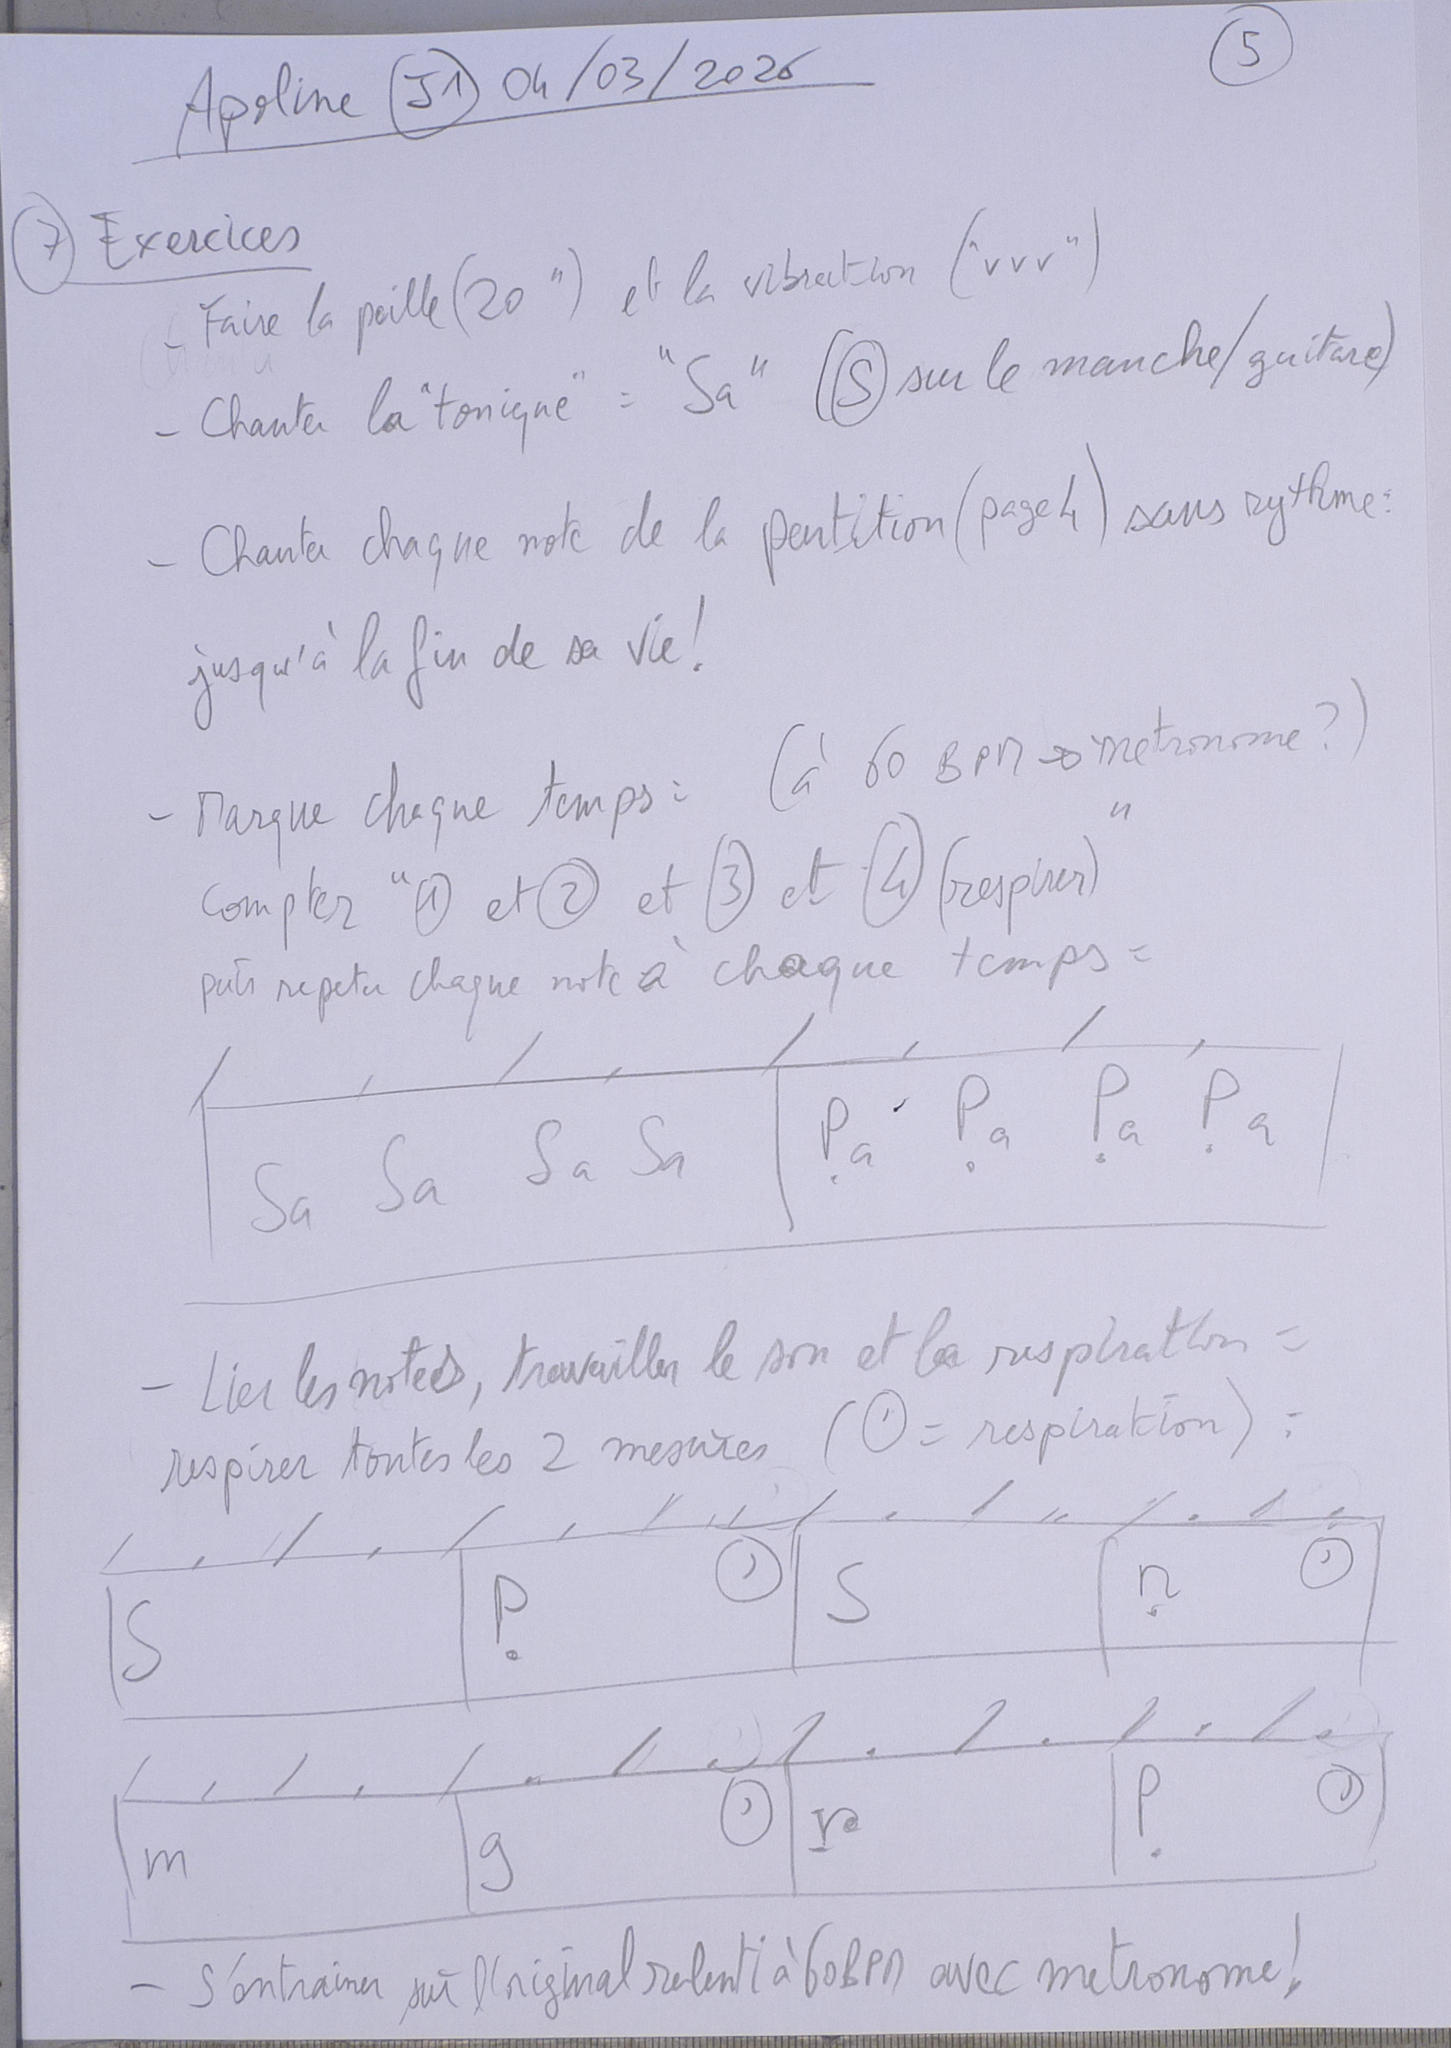 Apoline (J1) 04/03/2026
5
7 Exercices
- Faire la paille (20") et la vibration ("vvv")
- Chanter la "tonique" = "Sa" (S sur le manche/guitare)
- Chanter chaque note de la partition (page 4) sans rythme :
jusqu'à la fin de sa vie !
- Marque chaque temps : (à 60 BPM → métronome ?)
Compter "1 et 2 et 3 et 4 (respirer)"
puis repeter chaque note à chaque temps =
Sa Sa Sa Sa Pa Pa Pa Pa
- Lier les notes, travailler le son et la respiration =
respirer toutes les 2 mesures (' = respiration) :
S P ' S n '
m g ' r P '
- S'entrainer sur l'original ralenti à 60 BPM avec metronome !